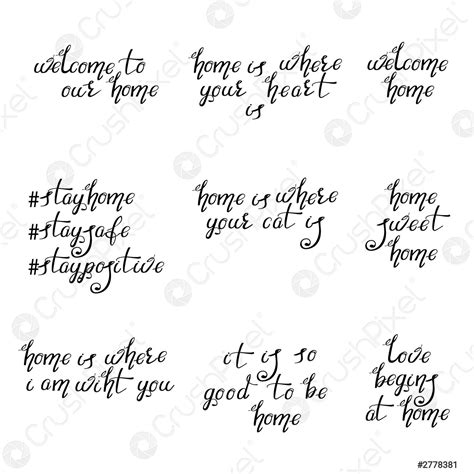 welcome to
our home
home is where
your heart
is
welcome
home
#stayhome
#staysafe
#staypositive
home is where
your cat is
home
sweet
home
home is where
i am wiht you
it is so
good to be
home
love
begins
at home
CrushPixel
#2778381